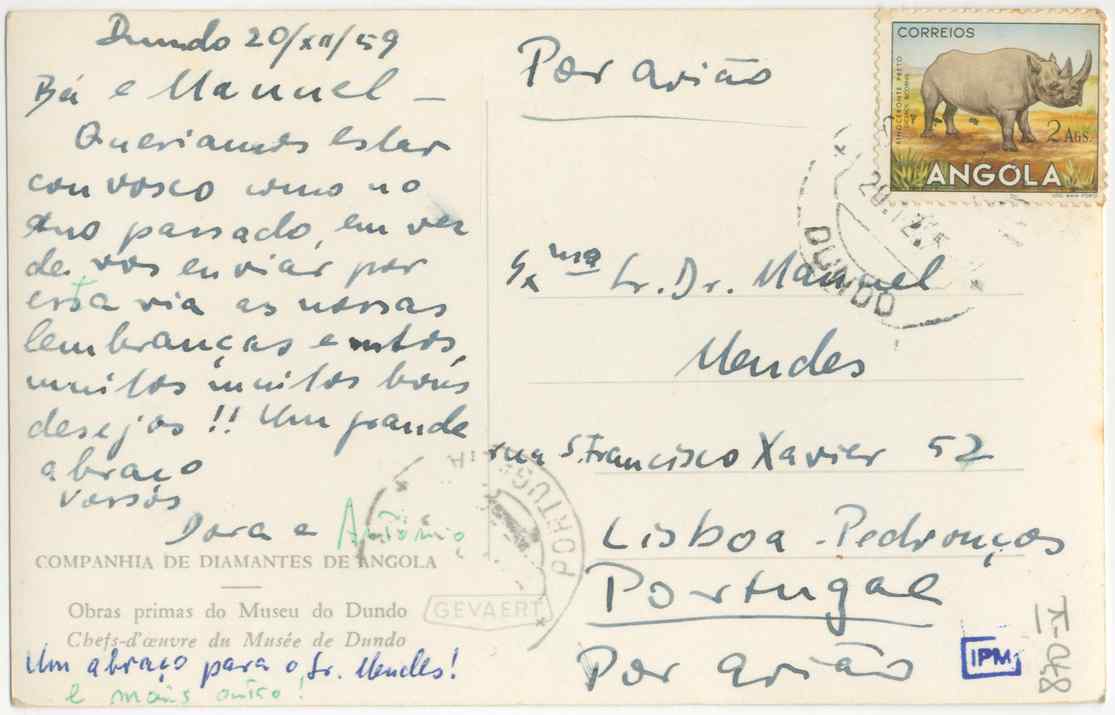 Dundo 20/XII/59
Bá e Manuel –
Queriamos estar
convosco como no
Ano passado, em vez
de vos enviar por
esta via as nossas
lembranças e votos,
muitos muitos bons
desejos !! Um grande
abraço
Vossos
Dora e António
COMPANHIA DE DIAMANTES DE ANGOLA
Obras primas do Museu do Dundo
Chefs-d'œuvre du Musée de Dundo
Um abraço para o Sr. Mendes!
e mais outro!
GEVAERT
Por avião
CORREIOS
RINOCERONTE PRETO
2 AGS.
ANGOLA
DUNDO
Exma Sr. Dr. Manuel
Mendes
rua S. Francisco Xavier 52
Lisboa - Pedrouços
Portugal
Por avião
PORTUGAL
IPM